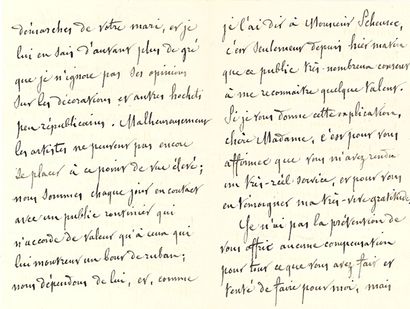 démarches de votre mari, et je
lui en sais d'autant plus de gré
que je n'ignore pas ses opinions
sur les décorations et autres hochets
peu républicains. Malheureusement
les artistes ne peuvent pas encore
se placer à ce point de vue élevé;
nous sommes chaque jour en contact
avec un public routinier qui
n'accorde de valeur qu'à ceux qui
lui montrent un bout de ruban;
nous dépendons de lui, et, comme
je l'ai dit à Monsieur Scheurer,
c'est seulement depuis hier matin
que ce public très-nombreux consent
à me reconnaître quelque valeur.
Si je vous donne cette explication,
chère Madame, c'est pour vous
affirmer que vous m'avez rendu
un très-réel service, et pour vous
en témoigner ma très-vive gratitude.
Je n'ai pas la prétention de
vous offrir aucune compensation
pour tout ce que vous avez fait et
tenté de faire pour moi, mais